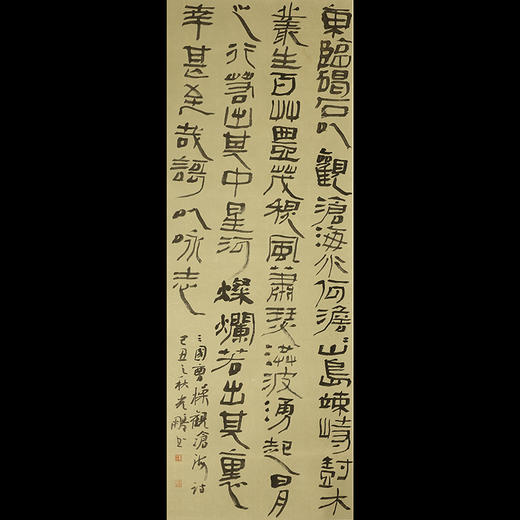 東臨碣石以觀滄海水何澹〻山島竦峙樹木
叢生百艸豐茂秋風蕭瑟洪波湧起日月
之行若出其中星河燦爛若出其裏
幸甚至哉謌以咏志
三國曹操觀滄海詩
己丑之秋鵬書